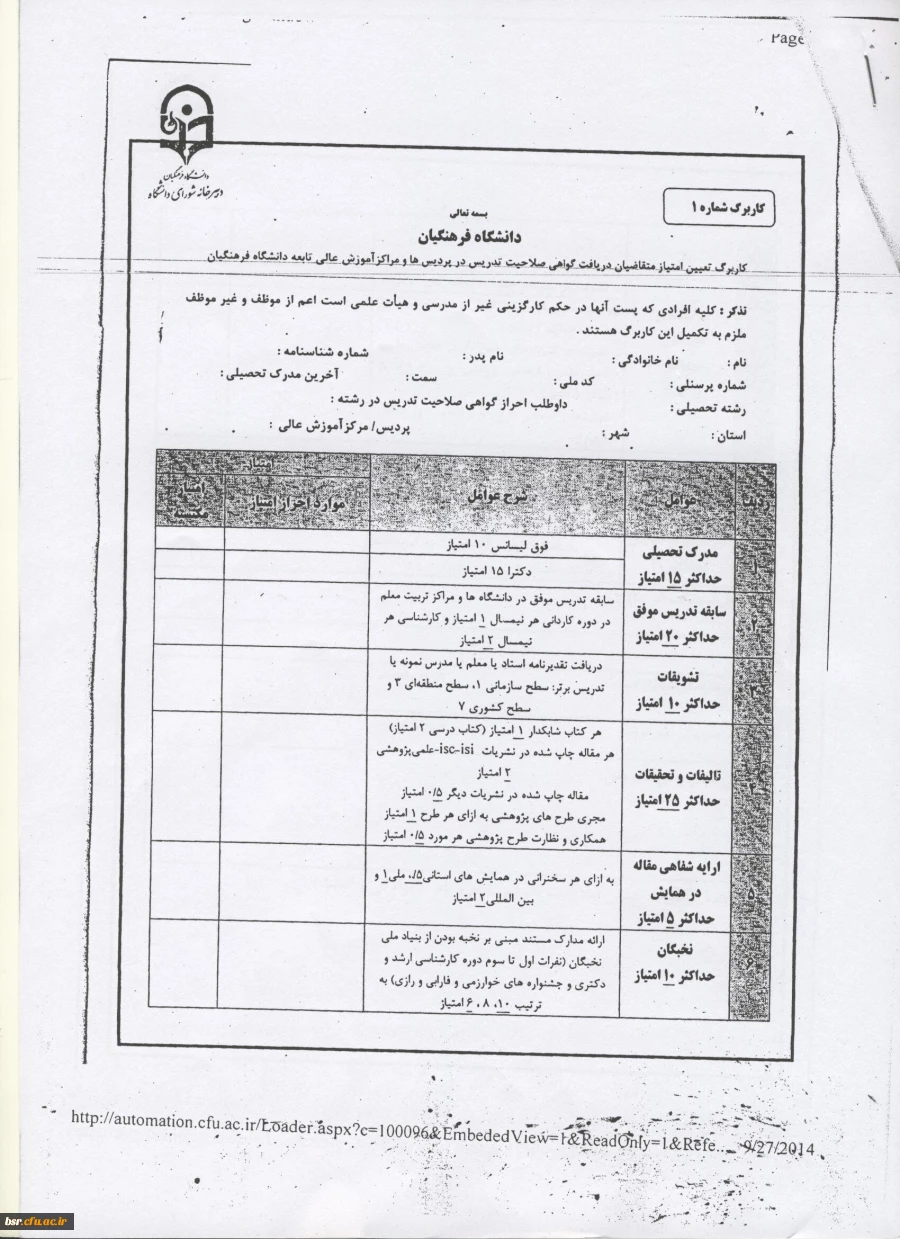 Page
دانشگاه فرهنگیان
دبیرخانه شورای دانشگاه
کاربرگ شماره ۱
بسمه تعالی
دانشگاه فرهنگیان
کاربرگ تعیین امتیاز متقاضیان دریافت گواهی صلاحیت تدریس در پردیس ها و مراکز آموزش عالی تابعه دانشگاه فرهنگیان
تذکر : کلیه افرادی که پست آنها در حکم کارگزینی غیر از مدرسی و هیأت علمی است اعم از موظف و غیر موظف
ملزم به تکمیل این کاربرگ هستند .
نام : نام خانوادگی : نام پدر : شماره شناسنامه :
شماره پرسنلی : کد ملی : سمت : آخرین مدرک تحصیلی :
رشته تحصیلی : داوطلب احراز گواهی صلاحیت تدریس در رشته :
استان : شهر : پردیس/ مرکز آموزش عالی :
ردیف عوامل شرح عوامل امتیاز
موارد احراز امتیاز امتیاز مکتسبه
۱ مدرک تحصیلی
حداکثر ۱۵ امتیاز
فوق لیسانس ۱۰ امتیاز
دکترا ۱۵ امتیاز
۲ سابقه تدریس موفق
حداکثر ۲۰ امتیاز
سابقه تدریس موفق در دانشگاه ها و مراکز تربیت معلم
در دوره کاردانی هر نیمسال ۱ امتیاز و کارشناسی هر
نیمسال ۲ امتیاز
۳ تشویقات
حداکثر ۱۰ امتیاز
دریافت تقدیرنامه استاد یا معلم یا مدرس نمونه یا
تدریس برتر: سطح سازمانی ۱، سطح منطقه‌ای ۳ و
سطح کشوری ۷
۴ تالیفات و تحقیقات
حداکثر ۲۵ امتیاز
هر کتاب شابکدار ۱ امتیاز (کتاب درسی ۲ امتیاز)
هر مقاله چاپ شده در نشریات isc-isi-علمی‌پژوهشی
۲ امتیاز
مقاله چاپ شده در نشریات دیگر ۰/۵ امتیاز
مجری طرح های پژوهشی به ازای هر طرح ۱ امتیاز
همکاری و نظارت طرح پژوهشی هر مورد ۰/۵ امتیاز
۵ ارایه شفاهی مقاله
در همایش
حداکثر ۵ امتیاز
به ازای هر سخنرانی در همایش های استانی ۰/۵، ملی ۱ و
بین المللی ۲ امتیاز
۶ نخبگان
حداکثر ۱۰ امتیاز
ارائه مدارک مستند مبنی بر نخبه بودن از بنیاد ملی
نخبگان (نفرات اول تا سوم دوره کارشناسی ارشد و
دکتری و جشنواره های خوارزمی و فارابی و رازی) به
ترتیب ۱۰، ۸، ۶ امتیاز
http://automation.cfu.ac.ir/Loader.aspx?c=100096&EmbededView=1&ReadOnly=1&Refe... 9/27/2014
bsr.cfu.ac.ir